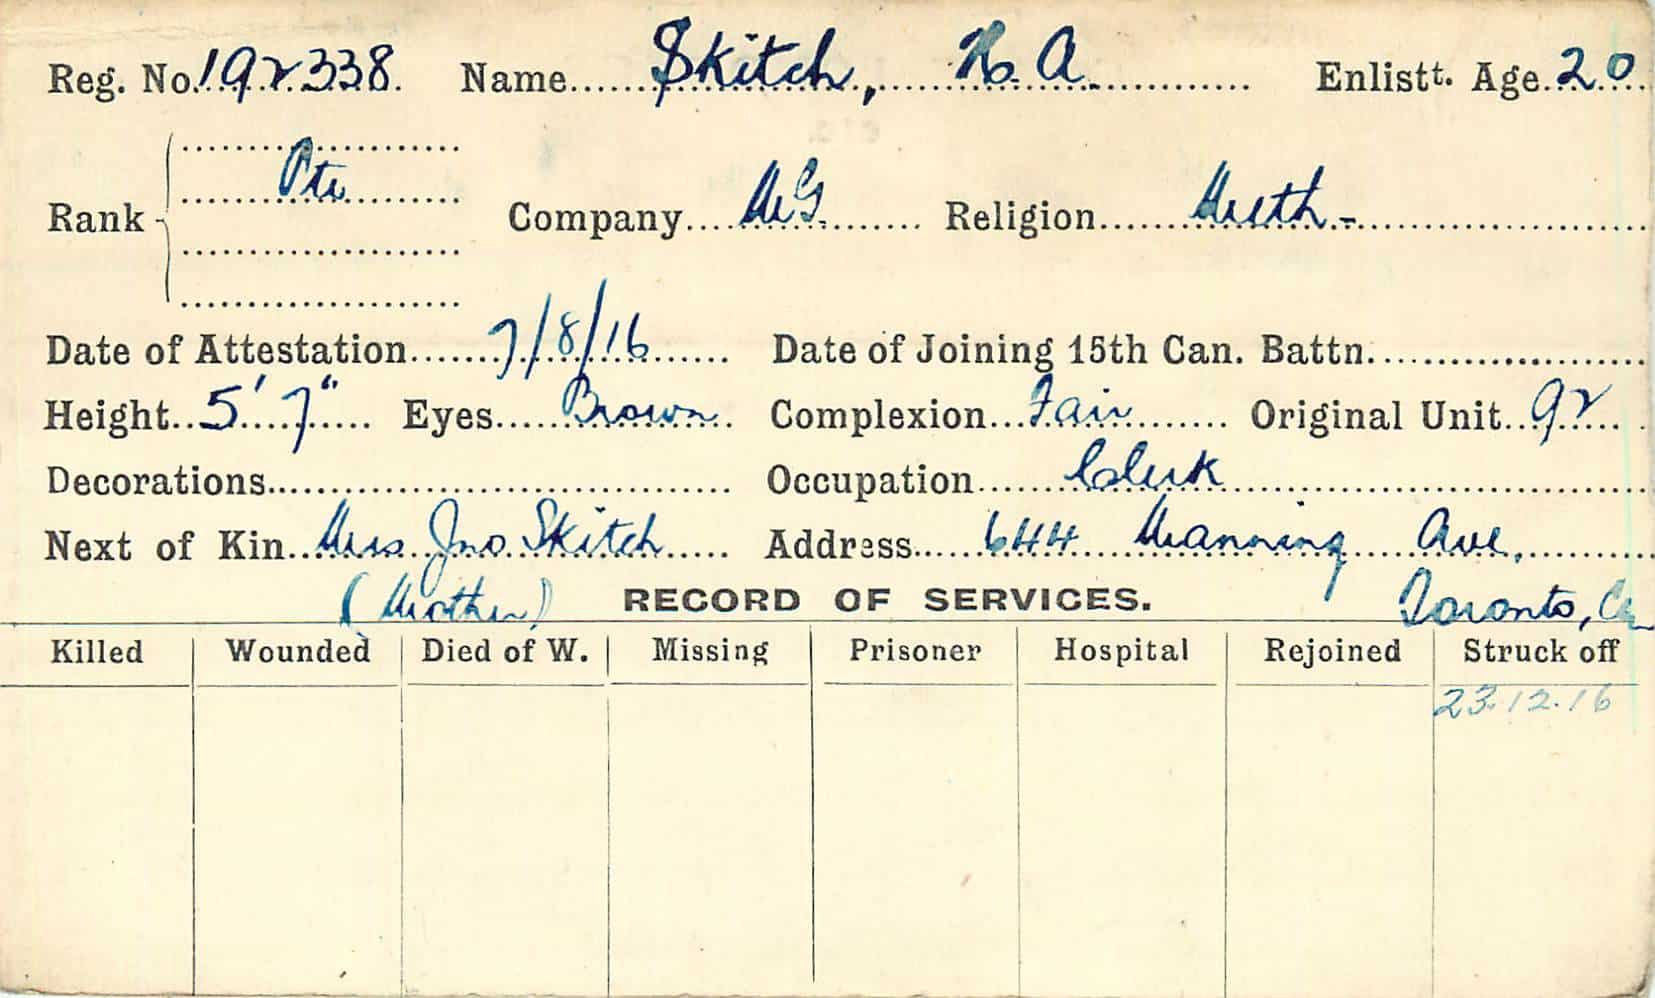 Reg. No. 192338. Name Skitch, H. A. Enlistt. Age 20
Pte
Rank Company M.G. Religion Meth-
Date of Attestation 7/8/16 Date of Joining 15th Can. Battn.
Height 5' 7" Eyes Brown Complexion Fair Original Unit 92
Decorations Occupation Clerk
Next of Kin Mrs. Jno. Skitch Address 644 Manning Ave,
(Mother) RECORD OF SERVICES. Toronto, Can
Killed Wounded Died of W. Missing Prisoner Hospital Rejoined Struck off
23.12.16